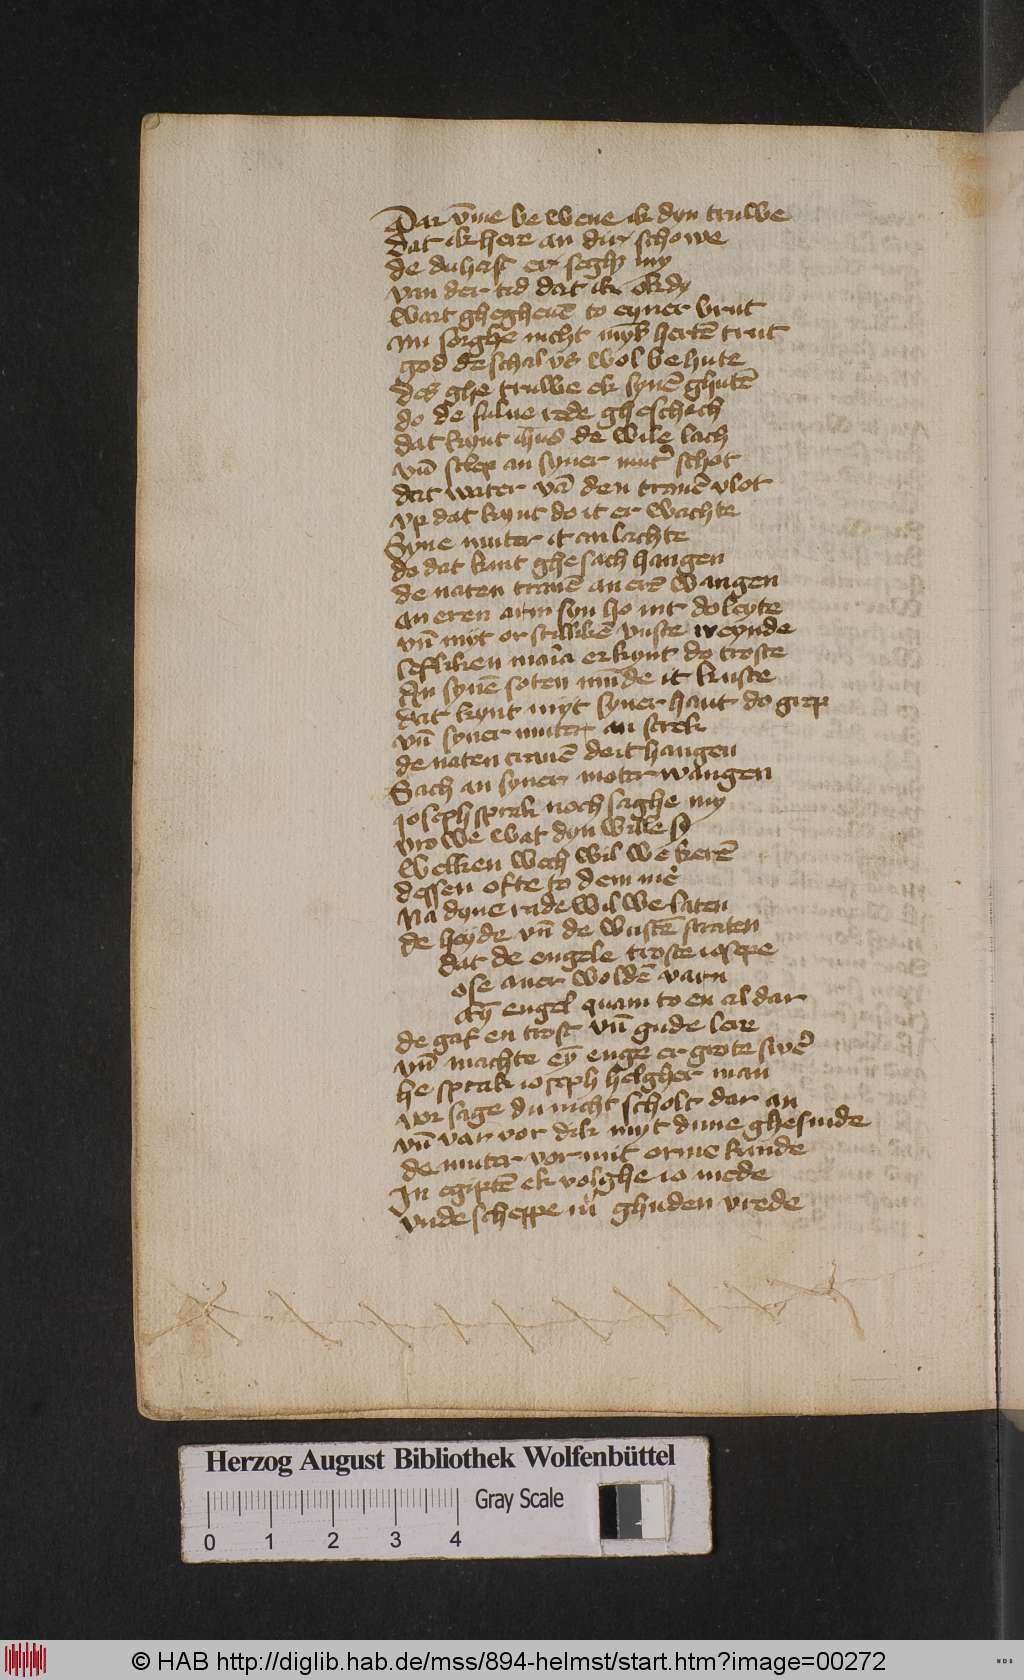 Dar v̄me be wene ik dyn truwe
dat ik here an dir schowe
de du hefst er segh my
van der tid dat ik ok dy
wart ghegheuē to eyner brut
nu sorghe nicht myk hertē trut
god de schal vs wol behute
des ghe truwe ek synē ghutē
do de sulue rede gheschach
dat kynt ihus de wile lach
vn̄ slep an syner mut' schot
dat water vā den tranē vlot
vp dat kynt do it er wachte
Syne muter it an lachte
do dat kint ghe sach hangen
de naten tranē an erē wangen
an eren arm syn ho int do leyte
vn̄ myt or stillikē vuste weynde
lefliken maria er kynt do troste
An synē soten mūde it kuste
dat kynt myt syner hant do grep
vn̄ syner muter an strek
de naten tranē de it hangen
Sach an syner moter wangen
ioseph sprak noch saghe my
vrowe wat dyn wille sy
welken wech wil we kerē
dessen ofte to dem me'
Na dyne rade wil we laten
de heyde vn̄ de wustē straten
dat de engele troste iosepe
ose auer woldē varn
Ey engel quam to en al dar
de gaf en trost vn̄ gude lere
vn̄ machte ey enge er grote swe'
he sprak ioseph helgher man
vor sage du nicht scholt dar an
vn̄ var vor dik myt dime ghesinde
de muter vor mit orme kinde
In egiptē ek volghe io mede
vnde scheppe iu ghuden vrede
Herzog August Bibliothek Wolfenbüttel
Gray Scale
0 1 2 3 4
© HAB http://diglib.hab.de/mss/894-helmst/start.htm?image=00272